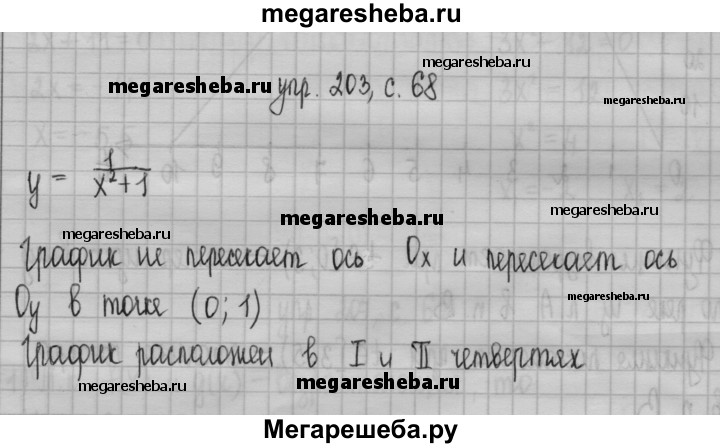 megaresheba.ru
megaresheba.ru
megaresheba.ru упр. 203, с. 68 megaresheba.ru
y = 1/(x²+1)
megaresheba.ru megaresheba.ru megaresheba.ru
График не пересекает ось Ox и пересекает ось
Oy в точке (0; 1) megaresheba.ru
График расположен в I и II четвертях
megaresheba.ru megaresheba.ru megaresheba.ru
Мегарешеба.ру